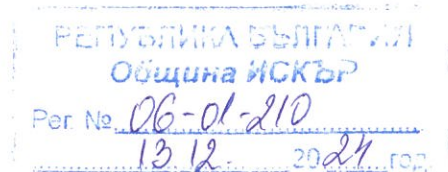 РЕПУБЛИКА БЪЛГАРИЯ
Община ИСКЪР
Рег. № 06-01-210
13.12. 2024 год.